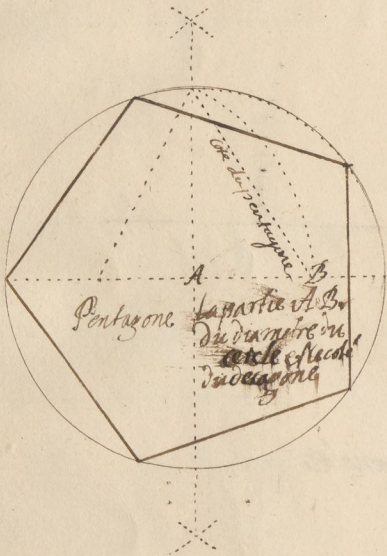 cote du pentagone
A
B
Pentagone
la partie A B.
du diametre du
cercle est le coté
du decagone